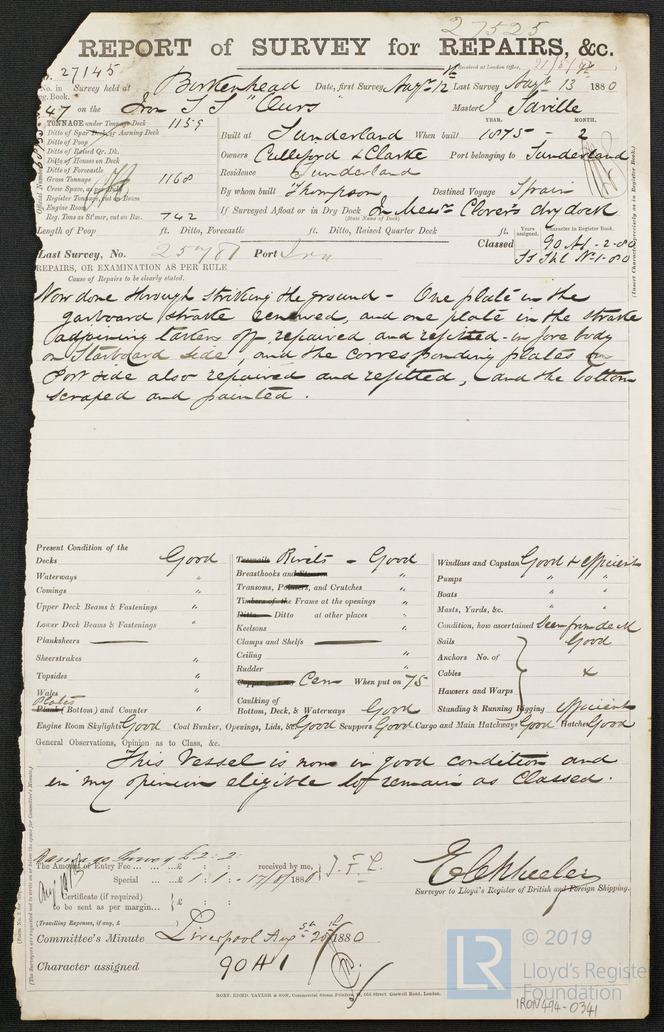 27525
REPORT of SURVEY for REPAIRS, &c.
Received at London Office,
No. 27145
No. in Survey held at Birkenhead Date, first Survey Augst 12 Last Survey Augt 13 1880
Reg. Book.
47 on the Iron S S "Ours" Master J Saville
TONNAGE under Tonnage Deck 1159
Ditto of Spar Deck, or Awning Deck
Ditto of Poop
Ditto of Raised Qr. Dk.
Ditto of Houses on Deck
Ditto of Forecastle
Gross Tonnage 1168
Crew Space, as per Rule
Register Tonnage, cut on Beam
Engine Room
Reg. Tons as St'mer, cut on Bm. 742
YEAR. MONTH.
Built at Sunderland When built 1875 - 2
Owners Culliford & Clarke Port belonging to Sunderland
Residence Sunderland
By whom built Thompson Destined Voyage Spain
If Surveyed Afloat or in Dry Dock In Messrs Clover's dry dock
(State Name of Dock)
Length of Poop ft. Ditto, Forecastle ft. Ditto, Raised Quarter Deck ft.
Years assigned. Character in Register Book.
Classed 90 A1 - 2-80
Last Survey, No. 25781 Port
REPAIRS, OR EXAMINATION AS PER RULE
Cause of Repairs to be clearly stated.
Now done through striking the ground - One plate in the
garboard strake renewed, and one plate in the strake
adjoining taken off repaired and refitted - in fore body
on Starboard side, and the corresponding plates on
Port side also repaired and refitted, and the bottom
scraped and painted.
Present Condition of the
Decks Good
Waterways "
Comings "
Upper Deck Beams & Fastenings "
Lower Deck Beams & Fastenings "
Planksheers
Sheerstrakes "
Topsides "
Wales "
Plates
Plank (Bottom) and Counter "
Treenails Rivets - Good
Breasthooks and "
Transoms, Pointers, and Crutches "
Timbers of the Frame at the openings "
Ditto Ditto at other places "
Keelsons "
Clamps and Shelfs
Ceiling "
Rudder "
Cem When put on 75
Caulking of
Bottom, Deck, & Waterways Good
Windlass and Capstan Good & efficient
Pumps " "
Boats " "
Masts, Yards, &c. " "
Condition, how ascertained Seen from deck
Sails Good
Anchors No. of
Cables &
Hawsers and Warps
Standing & Running Rigging efficient
Engine Room Skylights Good Coal Bunker, Openings, Lids, &c Good Scuppers Good Cargo and Main Hatchways Good Hatches Good
General Observations, Opinion as to Class, &c.
This Vessel is now in good condition and
in my opinion eligible to remain as Classed.
Damage Survey £ 2 : 2 :
The Amount of Entry Fee ... £ : : received by me,
Special ... £ 1 : 1 : 17/8/1880 J.F.L.
Certificate (if required)
to be sent as per margin... £ : :
(Travelling Expenses, if any, £ )
E C Wheeler
Surveyor to Lloyd's Register of British and Foreign Shipping.
Committee's Minute Liverpool Aug 20th 1880
Character assigned 90 A1
ROBT. EDMD. TAYLOR & SON, Commercial Steam Printers, Old Street Goswell Road, London.
LR
© 2019
Lloyd's Register
Foundation
IRON494-0341